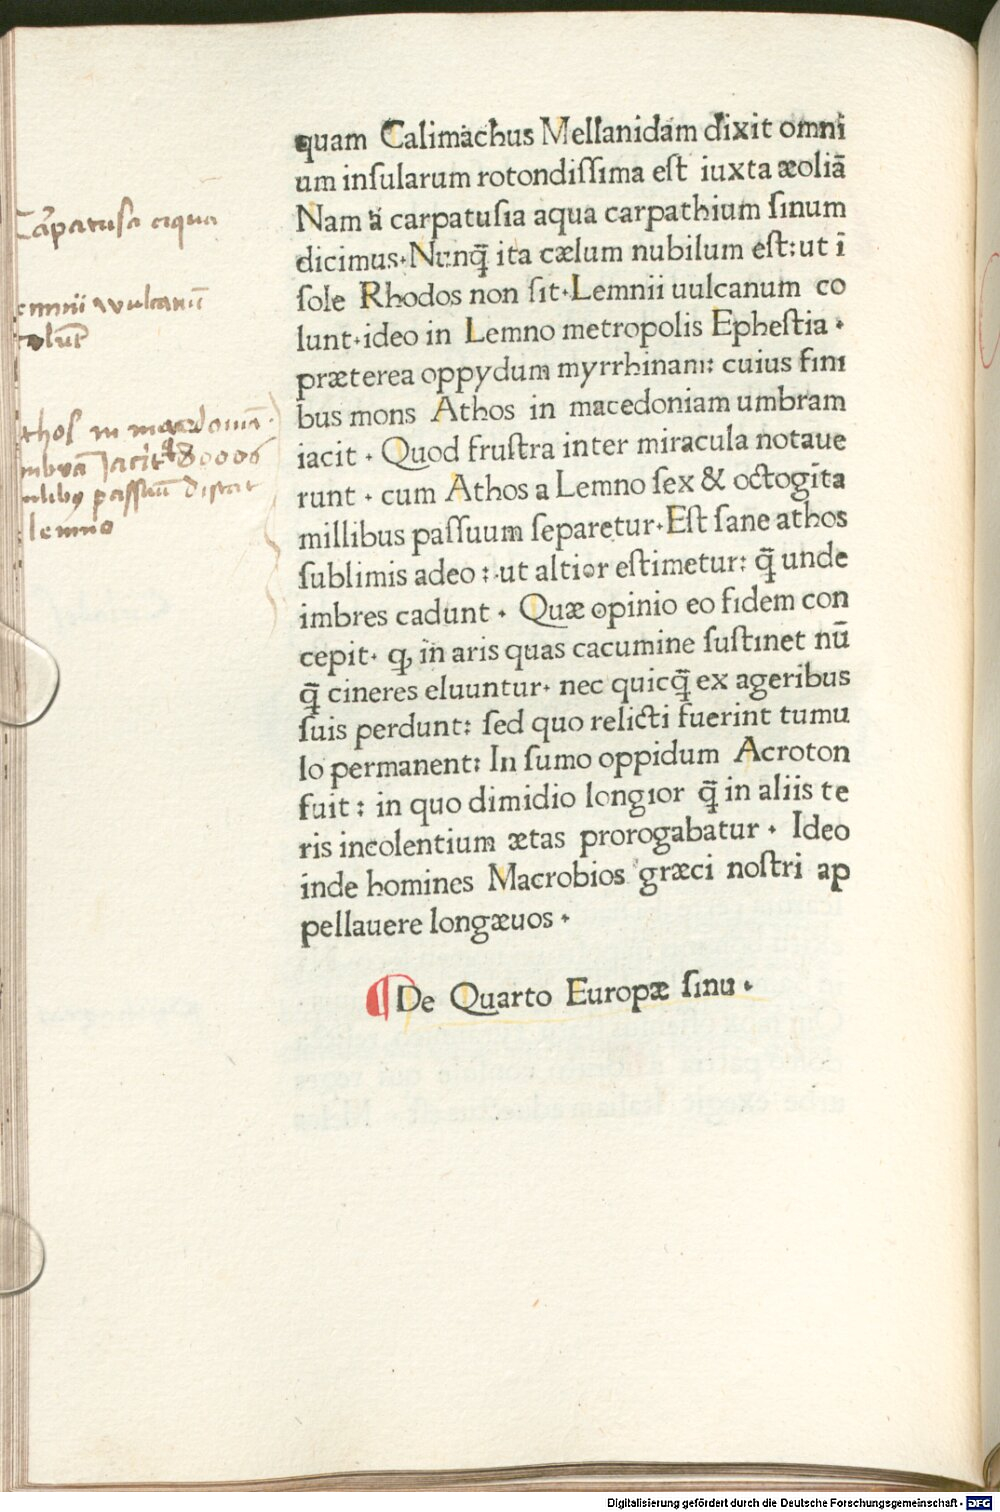 quam Calimachus Mellanidam dixit omni
um inſularum rotondiſſima eſt iuxta æoliā
Nam a carpatusia aqua carpathium ſinum
dicimus. Nunq̄ ita cælum nubilum eſt: ut ī
ſole Rhodos non ſit. Lemnii uulcanum co
lunt. ideo in Lemno metropolis Epheſtia .
præterea oppydum myrrhinam: cuius fini
bus mons Athos in macedoniam umbram
iacit . Quod fruſtra inter miracula notaue
runt . cum Athos a Lemno ſex & octogīta
millibus paſſuum ſeparetur. Eſt ſane athos
ſublimis adeo : ut altior eſtimetur: q̄ unde
imbres cadunt . Quæ opinio eo fidem con
cepit. ꝙ in aris quas cacumine ſuſtinet nū
q̄ cineres eluuntur. nec quicq̄ ex ageribus
ſuis perdunt: ſed quo relicti fuerint tumu
lo permanent: In ſumo oppidum Acroton
fuit : in quo dimidio longior q̄ in aliis te
ris incolentium ætas prorogabatur . Ideo
inde homines Macrobios græci noſtri ap
pellauere longæuos .
¶ De Quarto Europæ ſinu .
Carpatusa aqua
emnii vulcanū
olūt
thos in macedoniā
mbrā Jacit 80006
millibꝰ passuū distat
lemno
Digitalisierung gefördert durch die Deutsche Forschungsgemeinschaft - DFG